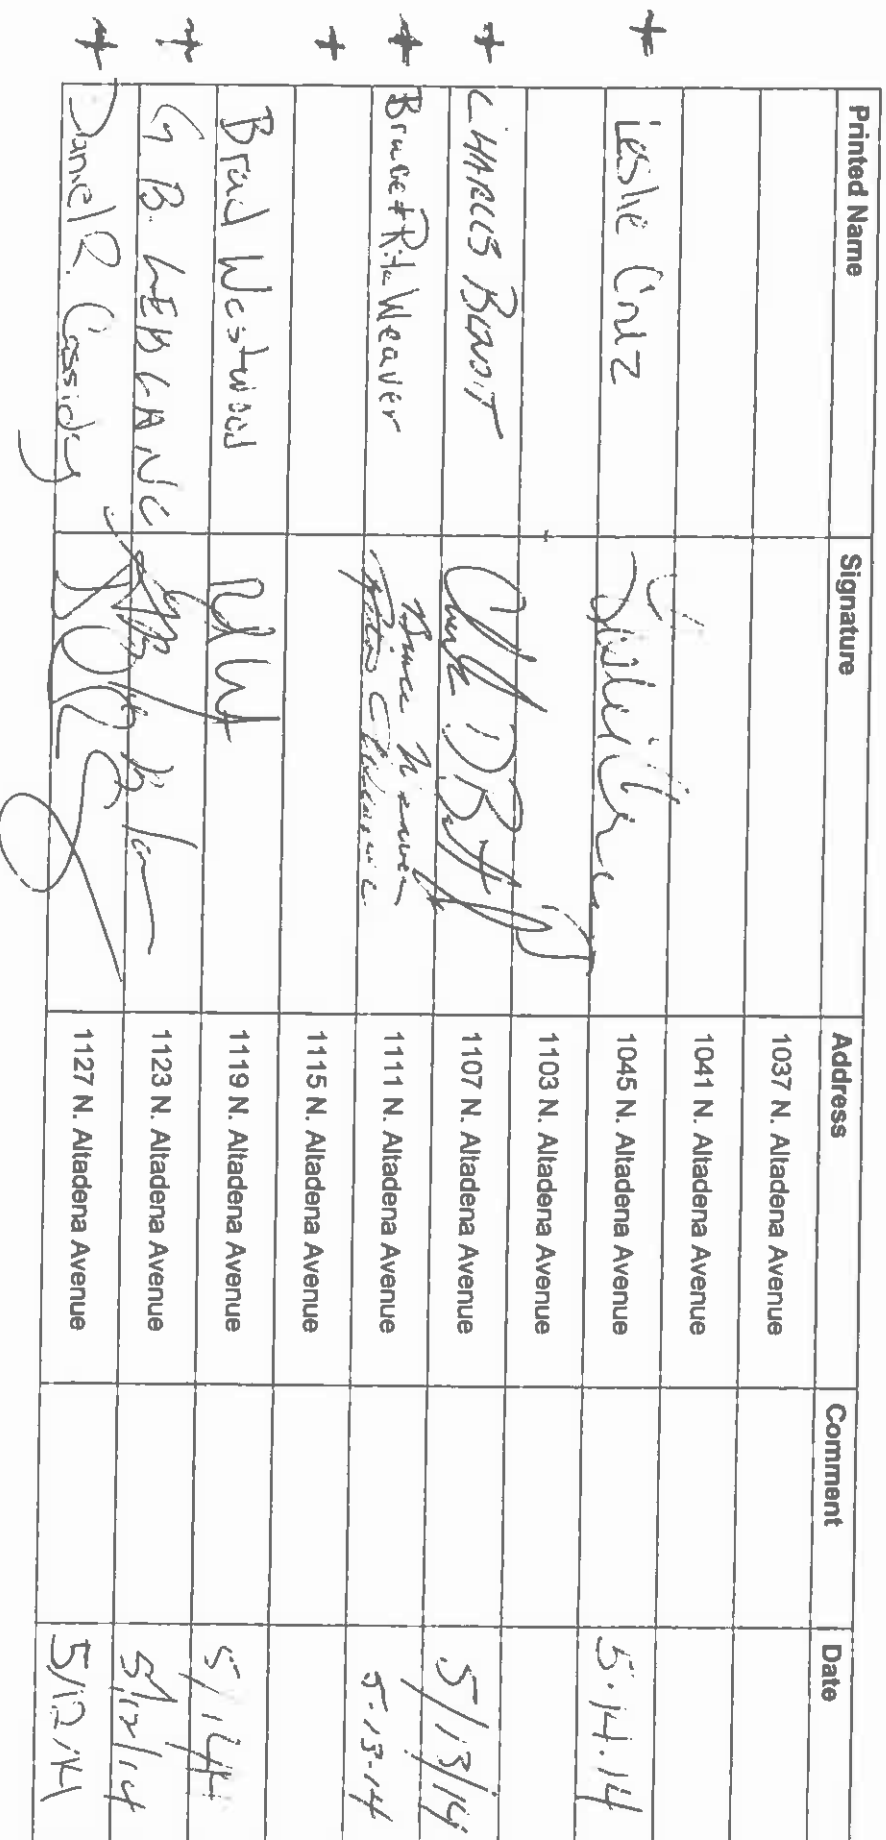 Printed Name Signature Address Comment Date
1037 N. Altadena Avenue
1041 N. Altadena Avenue
+ Leslie Cruz 1045 N. Altadena Avenue 5.14.14
1103 N. Altadena Avenue
+ CHARLES BENOIT 1107 N. Altadena Avenue 5/13/14
+ Bruce + Rita Weaver Bruce Weaver 1111 N. Altadena Avenue 5-13-14
+ 1115 N. Altadena Avenue
Brad Westwood 1119 N. Altadena Avenue
+ G.B. LEBLANC 1123 N. Altadena Avenue 5/12/14
+ Daniel R. Cassidy 1127 N. Altadena Avenue 5/12/14